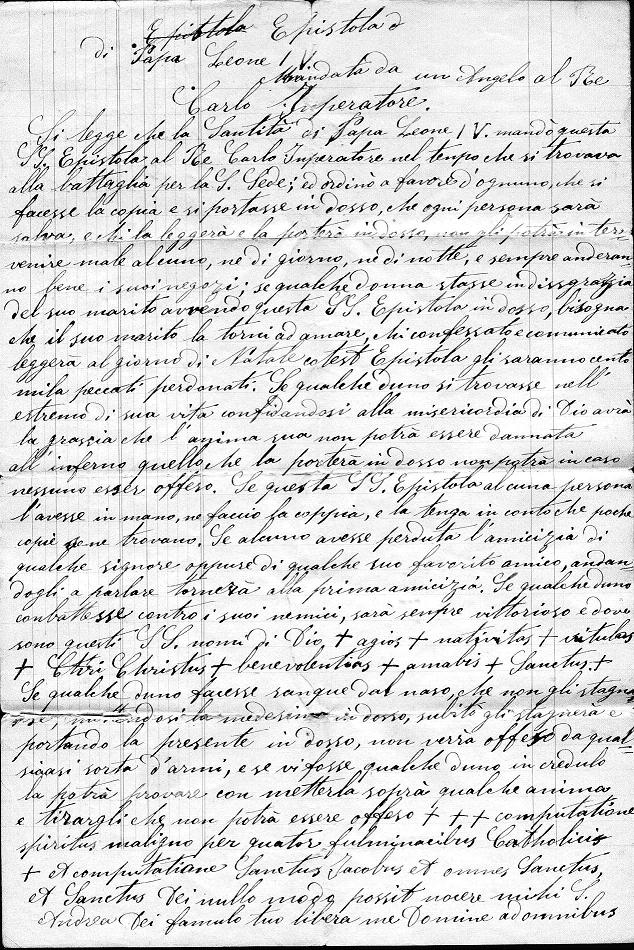 Epistola Epistola d
di Papa Leone IV.
Mandata da un Angelo al Re
Carlo Inperatore.
Si legge che la Santità di Papa Leone IV. mandò questa
SS. Epistola al Re Carlo Inperatore nel tenpo che si trovava
alla battaglia per la S. Sede; ed ordinò a favore d'ognuno, che si
facesse la copia e si portasse in dosso, che ogni persona sarà
salva, e chi la leggerà e la porterà in dosso, non gli potrà inter-
venire male alcuno, nè di giorno, nè di notte, e sempre anderan-
no bene i suoi negozi; se qualche donna stasse in dissgrazzia
del suo marito avvendo questa SS. Epistola in dosso, bisogna
che il suo marito la torni ad amare, chi confessato e comunicato
leggerà al giorno di Natale cotest Epistola gli saranno cento
mila peccati perdonati. Se qualche duno si trovasse nell'
estremo di sua vita confidandosi alla misericordia di Dio avrà
la grassia che l'anima sua non potrà essere dannata
all'inferno quello che la porterà in dosso non potrà in caso
nessuno esser offeso. Se questa SS. Epistola alcuna persona
l'avesse in mano, ne faccio fa coppia, e la tenga in conto che poche
copie se ne trovano. Se alcuno avesse perduta l'amicizia di
qualche signore oppure di qualche suo favorito amico, andan-
dogli a parlare tornerà alla prima amicizia. Se qualche duno
conbattesse contro i suoi nemici, sarà senpre vittorioso e dove
sono questi SS. nomi di Dio, + agios + nativitas + vitulas
+ Christus + benevolentias + amabis + Sanctus. +
Se qualche duno facesse sangue dal naso, che non gli stagna-
sse, mettendosi la medesima in dosso, subito gli stagnerà e
portando la presente in dosso, non verrà offeso da qual-
siasi sorta d'armi, e se vi fosse qualche duno in credulo
la potrà provare con metterla soprà qualche anima
e tirargli che non potrà essere offeso + + + computatione
spiritus malizno per quator fulminacibus Catholicis
+ et computatiane Sanctus Jacobus et omnes Sanctus,
et Sanctus Dei nullo modo possit nocere mihi S.
Andrea Dei famulo tuo libera me Domine ad omnibus